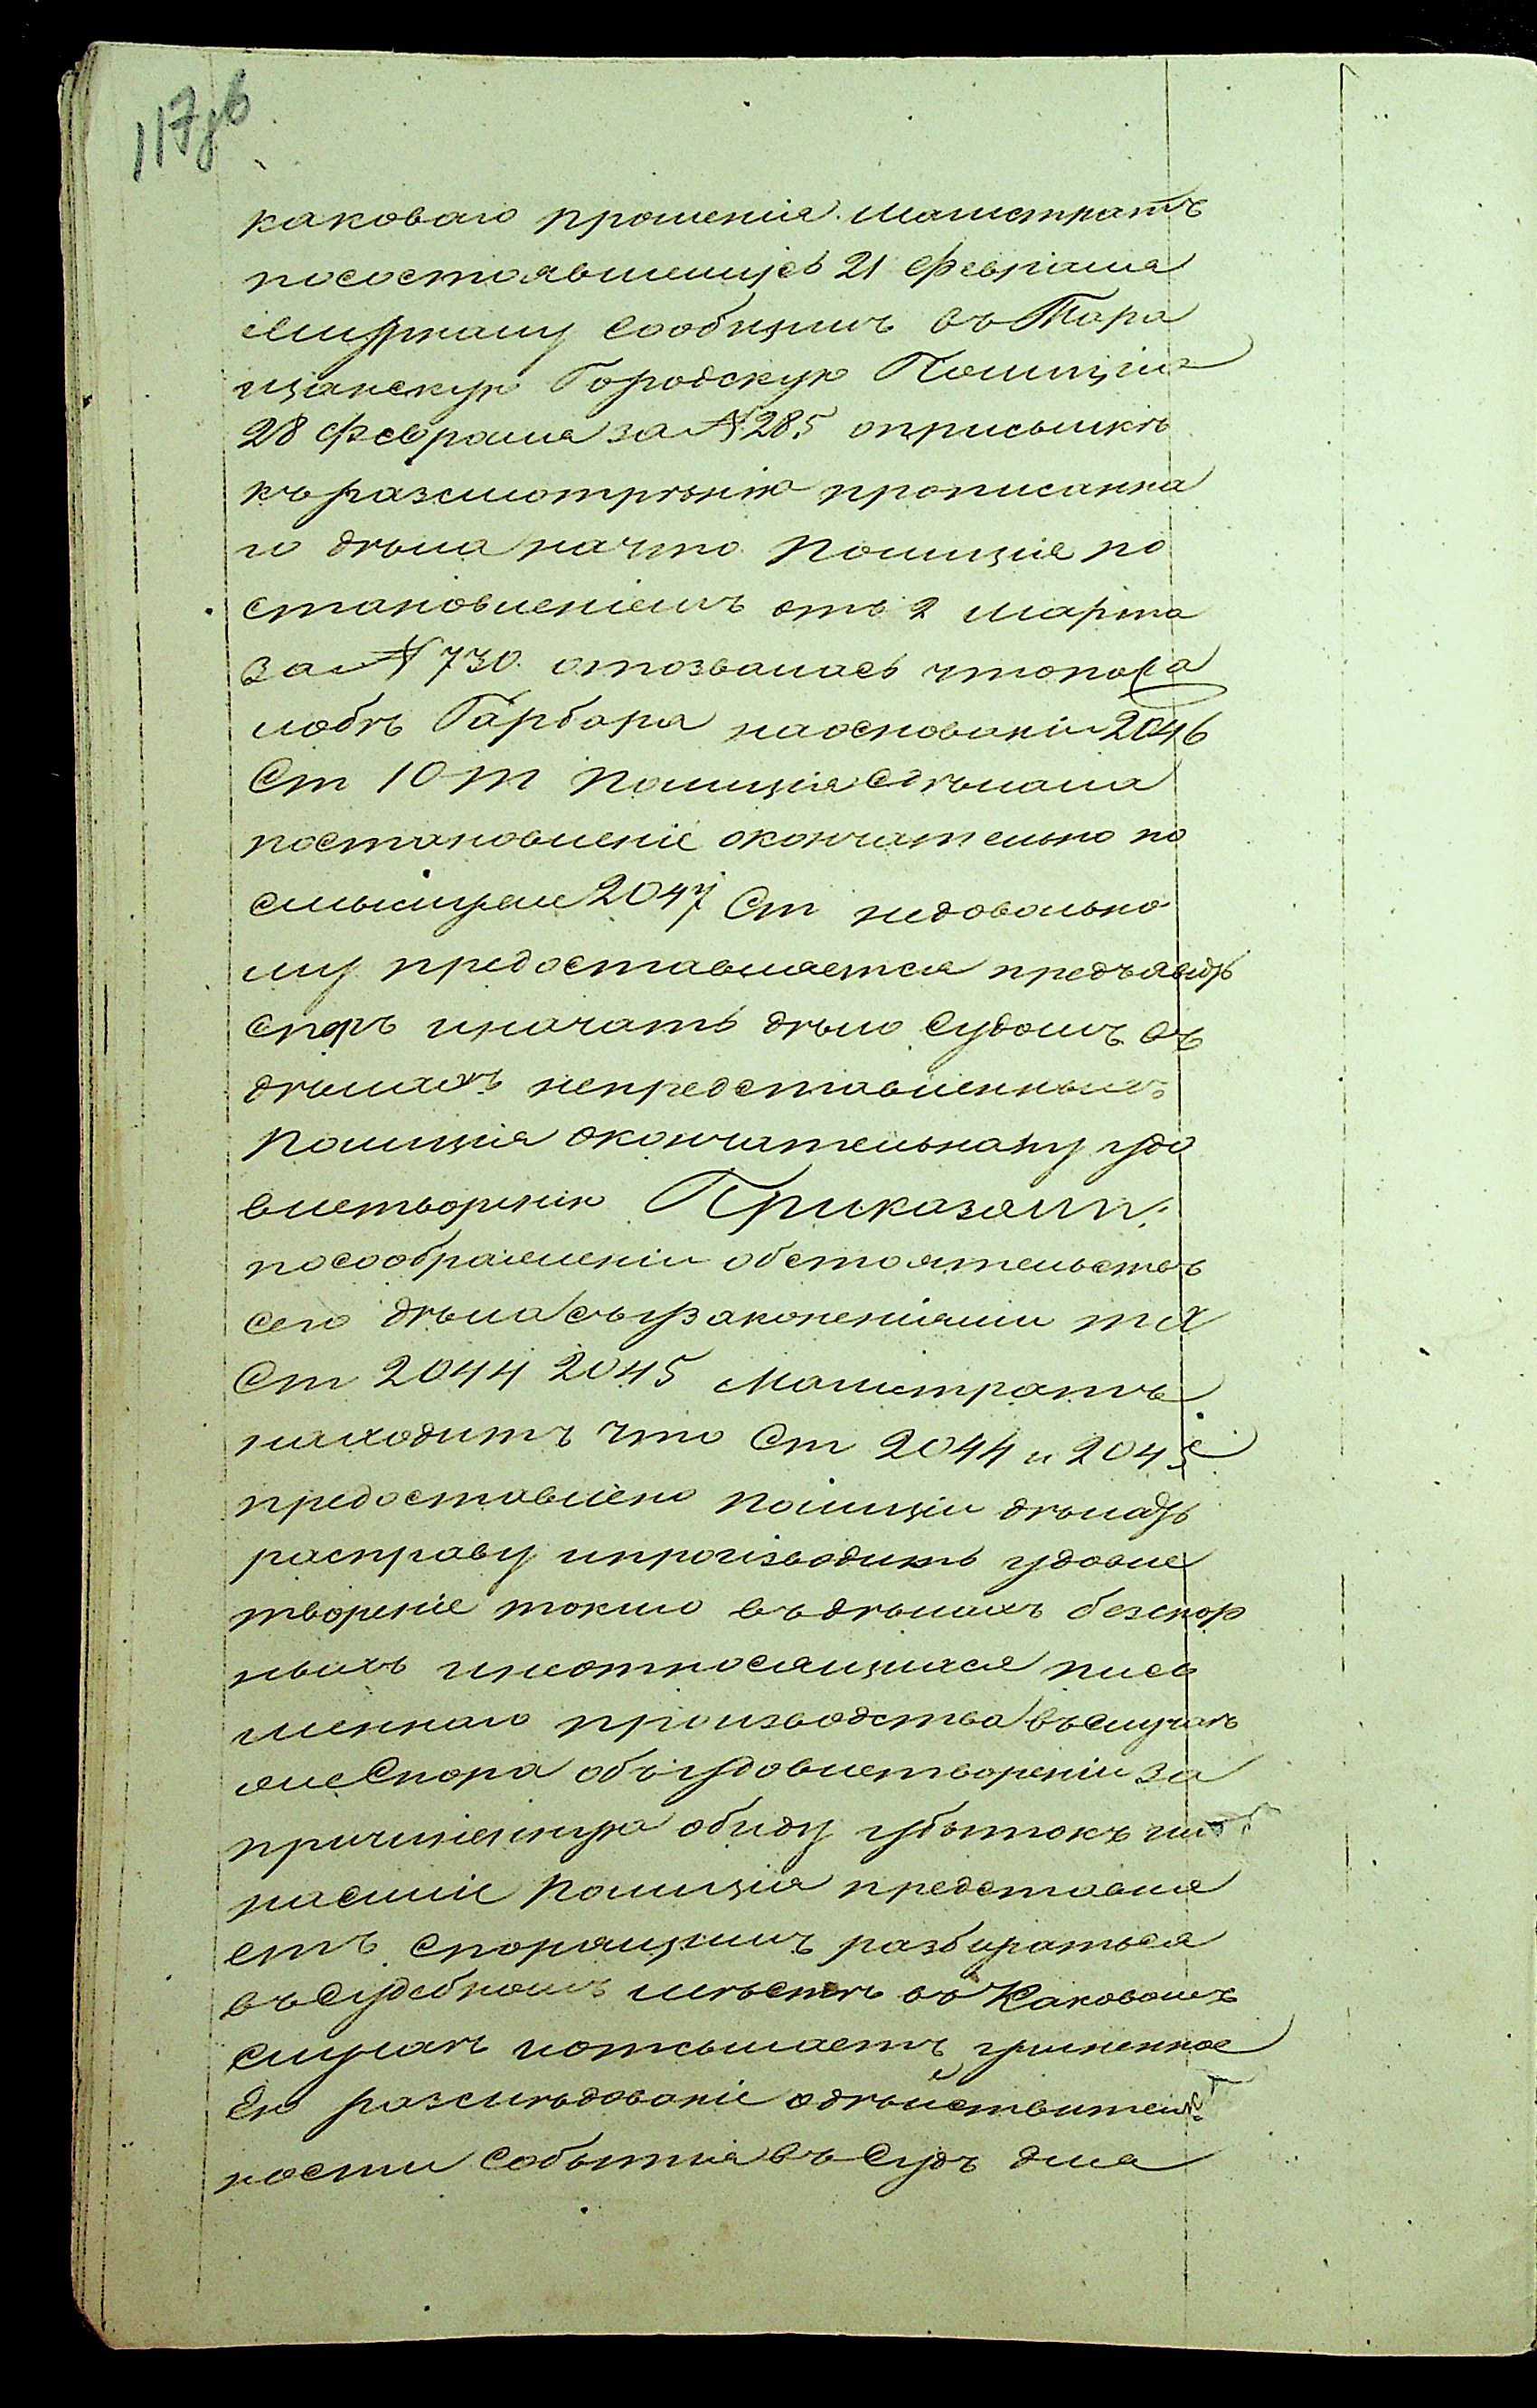 117 зв
каковаго прошенія Магистратъ
посостоявшемуся 21 Февраля
сообщилъ въ Тара
щанскую Городскую Полицію
28 Февраля за № 285 оприсылкѣ
къ разсмотрѣнію прописанна
го дѣла начто Полиція по
становленіемъ отъ 2 марта
за № 730 отозвалась что пожа
лобѣ Гарбара наоснованіи 2046
Ст 10 т Полиція сдѣлала
постановленіе окончательно по
2047 Ст недовольно
му предоставляется предъявить
споръ иначать дѣло Судомъ въ
дѣлахъ непредставленныхъ
Полиціи окончательнаму удо
влетворенію Приказали:
посоображеніи обстоятельствъ
сего дѣла съ узаконеніями т X
Ст 2044 2045 Магистратъ
находитъ что Ст 2044 и 2045
предоставлено Полиціи дѣлать
расправу ипроизводить удовле
твореніе токмо въ дѣлахъ безспор
ныхъ инеотносящихся пись
меннаго производства въ случаѣ
же Спора объ удовлетвореніи за
причиненную обиду убытокъ или
насиліе Полиція представля
етъ спорящимъ разбираться
въ Судебномъ мѣстѣ въ каковомъ
случаѣ иотсылаетъ учиненное
Ею разслѣдованіе одѣйствитель
ности событія въ Судъ для